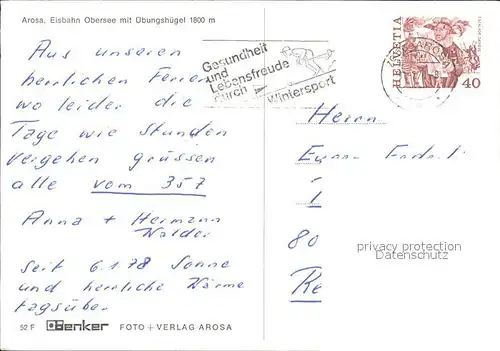 Arosa, Eisbahn Obersee mit Übungshügel 1800 m
Aus unseren
herrlichen Ferien
wo leider die
Tage wie Stunden
vergehen grüssen
alle vom 357
Anna + Hermann
Walder
Seit 6.1.78 Sonne
und herrliche Wärme
tagsüber.
52 F Benker FOTO + VERLAG AROSA
Gesundheit
und
Lebensfreude
durch
Wintersport
AROSA
HELVETIA
40
Herrn
1
80
Re
privacy protection
Datenschutz